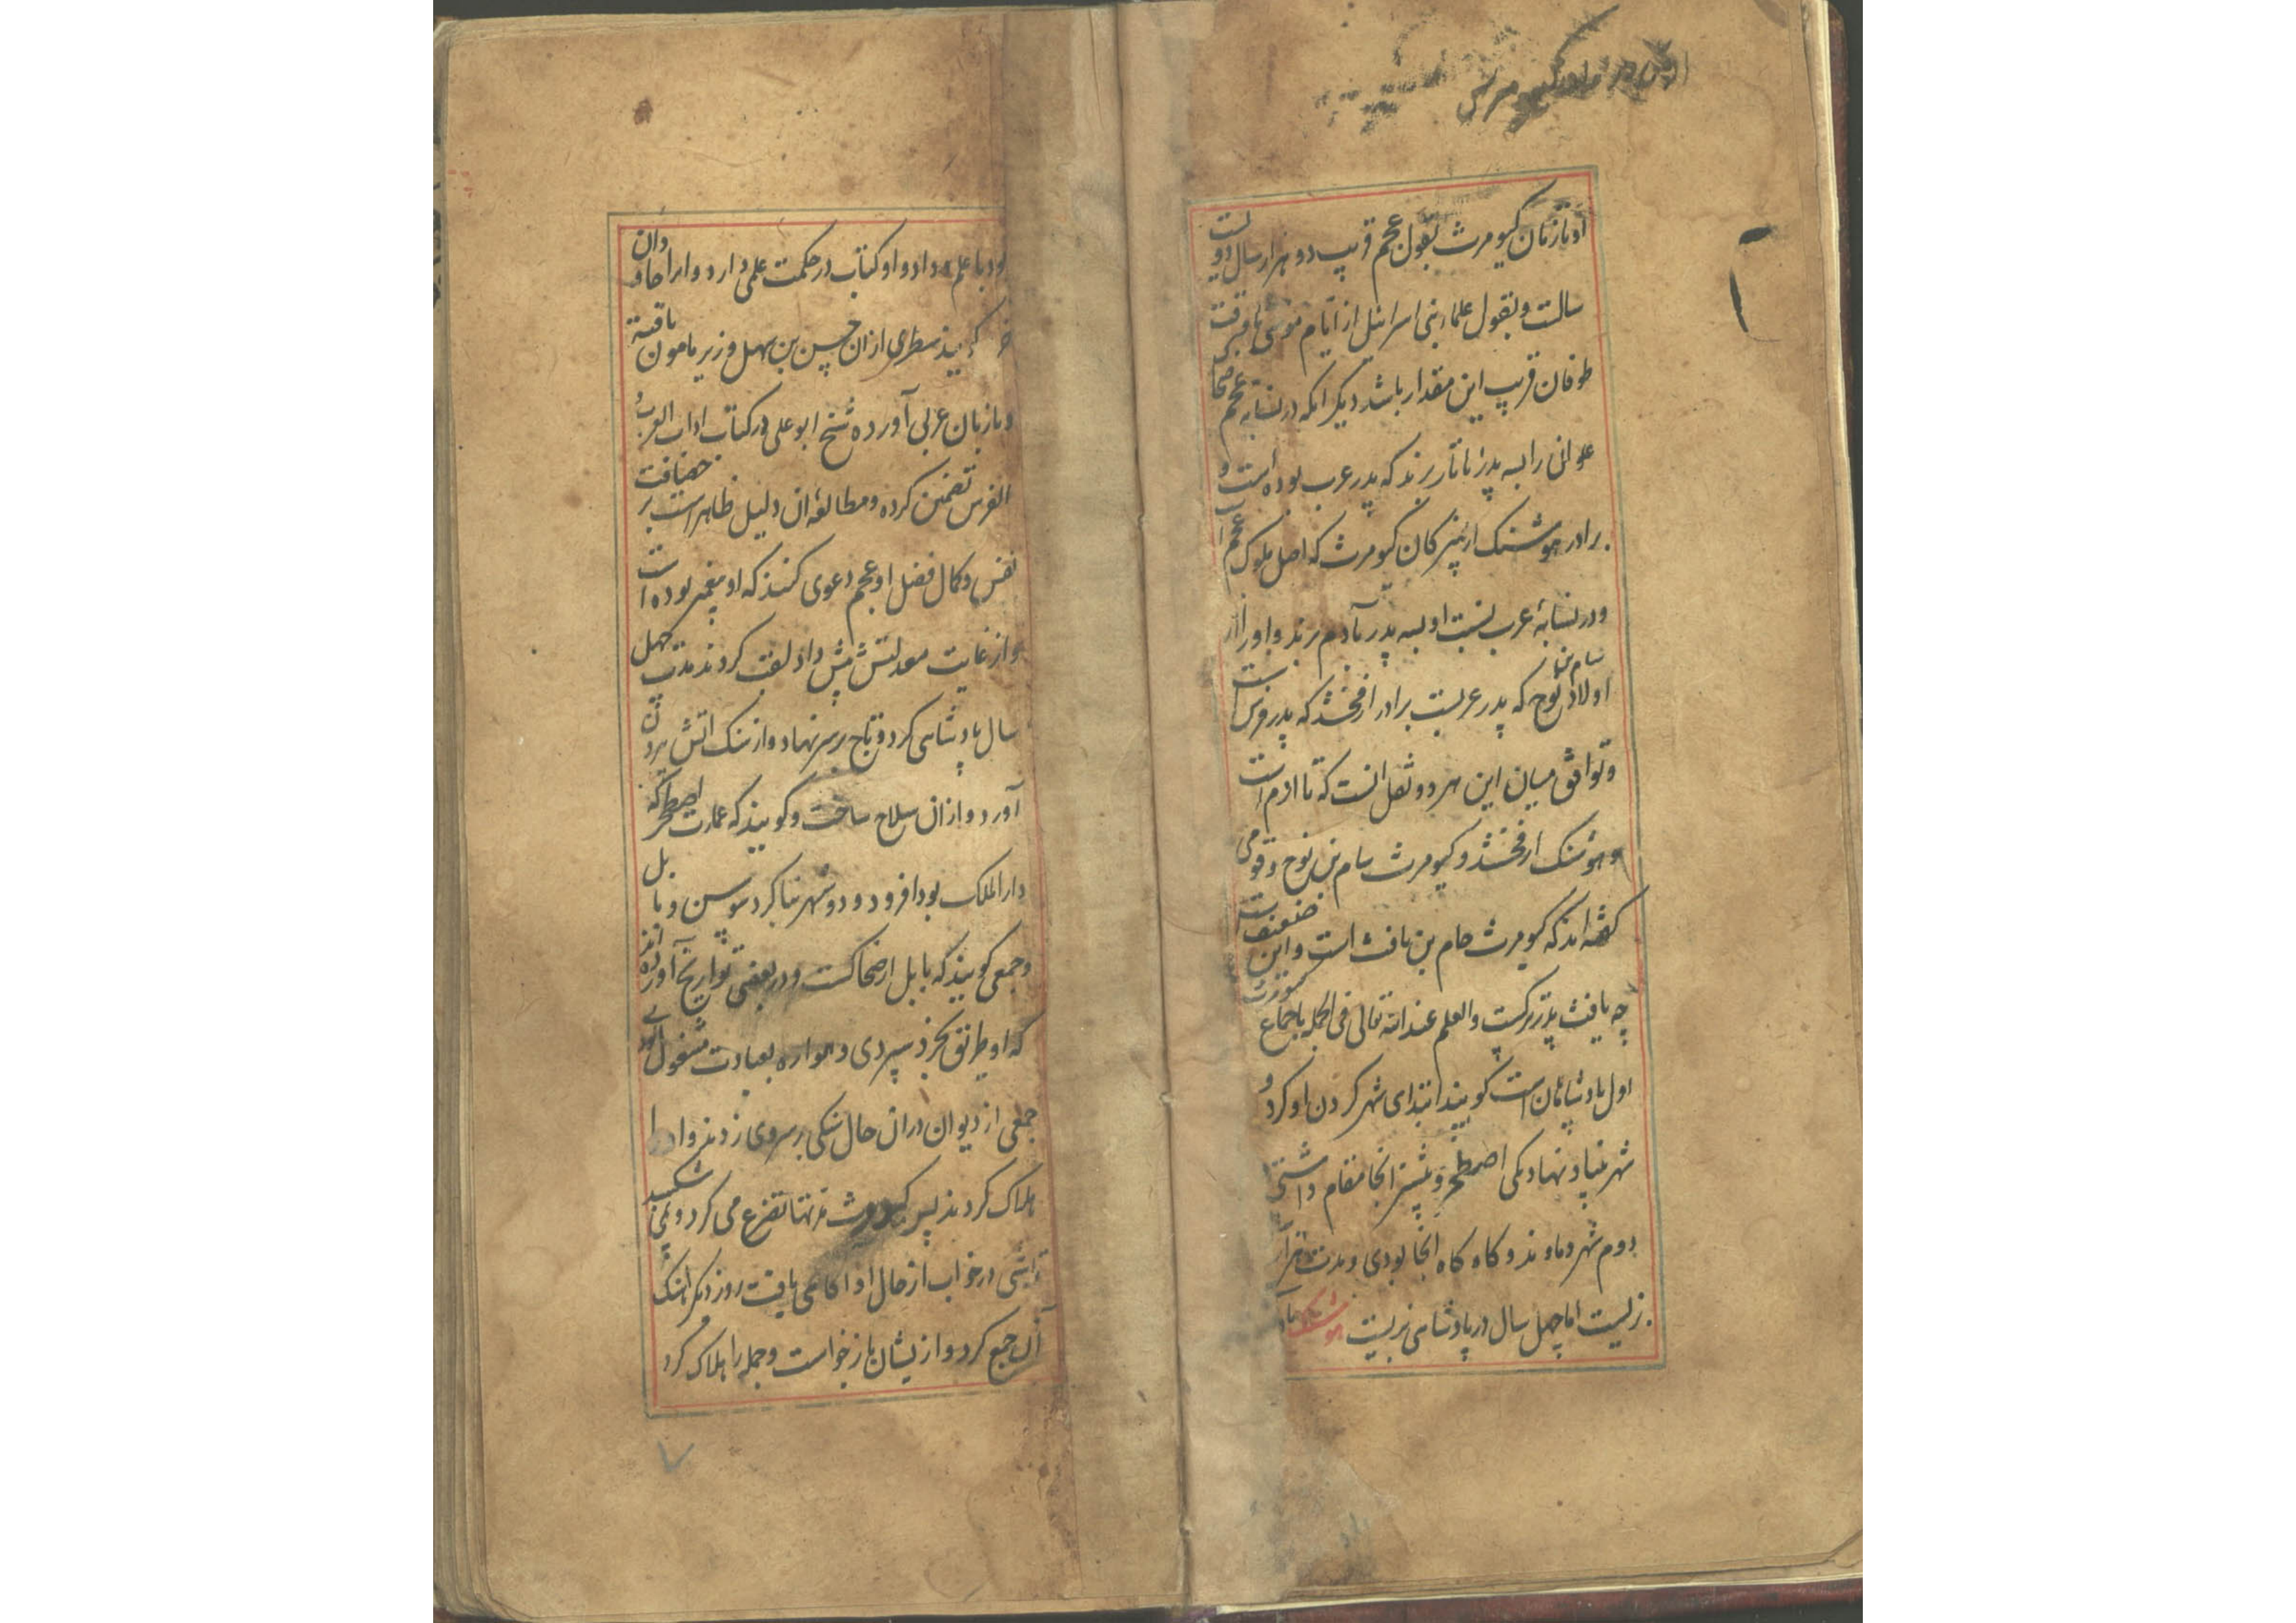 او تا زمان کیومرث بقول عجم قریب دو هزار سال و دویست
سالست و بقول علماء بنی اسرائیل از ایام موسی تا
طوفان قریب این مقدار باشد دیگر انکه در نسابه عجم ضحاک
علوان را بسه پدر تا تاز برند که پدر عرب بوده است و
برادر هوشنک از نبیرکان کیومرث که اصل ملوک عجم
و در نسابه عرب نسبت او بسه پدر بآدم برند و او را از
اولاد سام بن نوح که پدر عربست برادر ارفخشد که پدر فرس است
و توافق میان این هر دو نقل انست که تا ادم است
و هوشنک ارفخشد و کیومرث سام بن نوح و قومی
کفته اند که کیومرث حام بن یافث است و این ضعیفست
چه یافث پدر ترکست و العلم عند الله تعالی فی الجمله باجماع
اول پادشاهان است کویند ابتدای شهر کردن او کرد و
شهر بنیاد نهاد یکی اصطخر و بیشتر انجا مقام داشتی
دوم شهر دماوند و کاه کاه انجا بودی و مدت هزار
زیست اما چهل سال در پادشاهی بزیست هوشنک
بود با علم و داد و او کتاب در حکمت علمی دارد و انرا جاودان
خرد کویند سطری از ان حسن بن سهل وزیر مامون یافته
و با زبان عربی آورده شیخ ابو علی در کتاب اداب العرب و
الفرس تضمین کرده و مطالعه ان دلیل ظاهر است بر حصافت
نفس و کمال فضل او عجم دعوی کنند که او پیغمبر بوده است
و از غایت معدلتش پیش داد لقب کردند مدت چهل
سال پادشاهی کرد و تاج بر سر نهاد و از سنک اتش بیرون
آورد و از ان سلاح ساخت و کویند که عمارت اصطخر که
دار الملک بود افزود و دو شهر بنا کرد سوس و بابل
و جمعی کویند که بابل از ضحاکست و در بعضی تواریخ آورده اند
که او طریق تجرد سپردی و همواره بعبادت مشغول بودی
جمعی از دیوان در ان حال سنکی بر سر وی زدند و او را
هلاک کردند پس کیومرث تنها تضرع می کرد و می
تا شبی در خواب از حال او اکاهی یافت روز دیکر اهنک
آن جمع کرد و از یشان باز خواست و جمله را هلاک کرد
۷